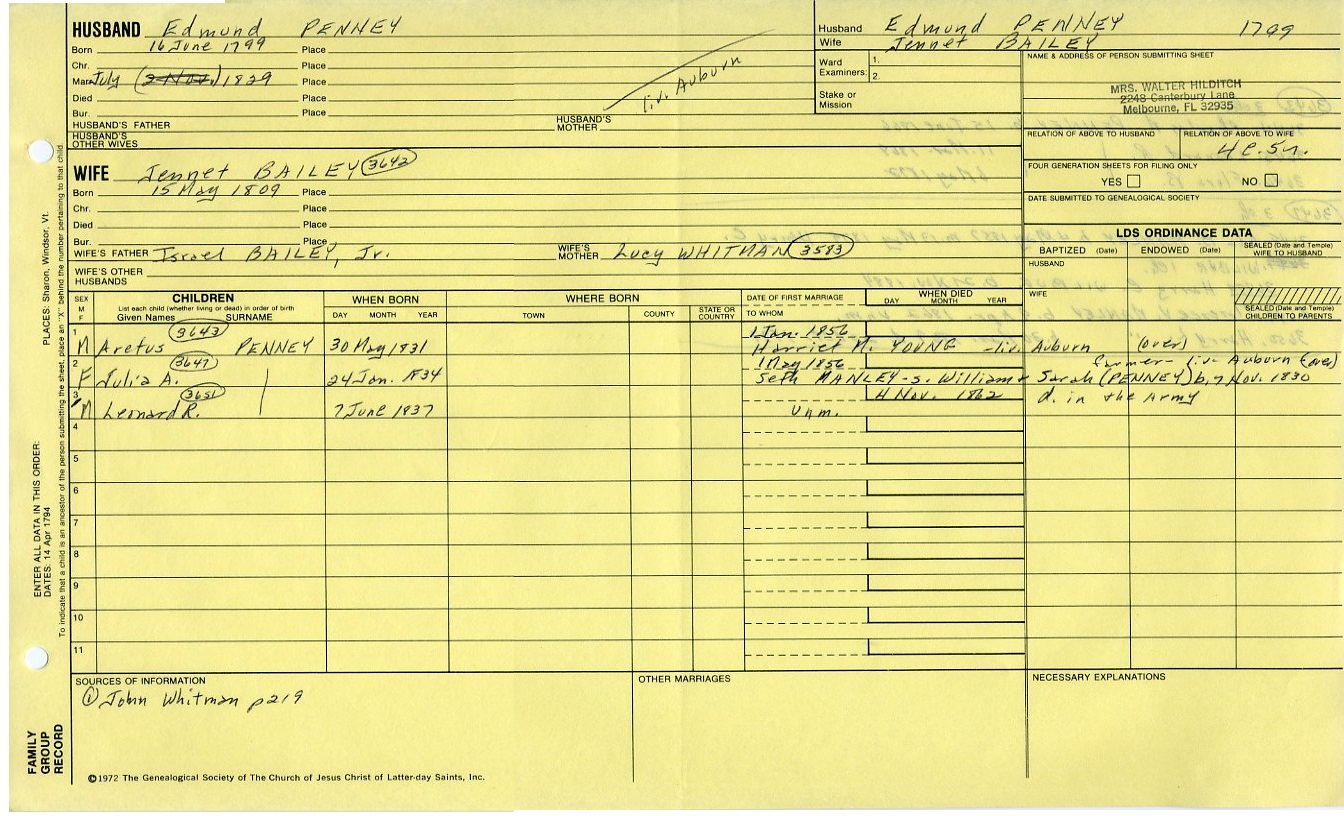 HUSBAND Edmund PENNEY
Born 16 June 1799 Place
Chr. Place
Mar. July (2 Nov.) 1829 Place
Died Place
Bur. Place
liv. Auburn
HUSBAND'S FATHER
HUSBAND'S MOTHER
HUSBAND'S OTHER WIVES
Husband Edmund PENNEY 1799
Wife Jennet BAILEY
Ward Examiners: 1.
2.
Stake or Mission
NAME & ADDRESS OF PERSON SUBMITTING SHEET
MRS. WALTER HILDITCH
2248 Canterbury Lane
Melbourne, FL 32935
RELATION OF ABOVE TO HUSBAND
RELATION OF ABOVE TO WIFE
4c.5r.
FOUR GENERATION SHEETS FOR FILING ONLY
YES NO
DATE SUBMITTED TO GENEALOGICAL SOCIETY
WIFE Jennet BAILEY 3642
Born 15 May 1809 Place
Chr. Place
Died Place
Bur. Place
WIFE'S FATHER Israel BAILEY, Jr.
WIFE'S MOTHER Lucy WHITMAN 3583
WIFE'S OTHER HUSBANDS
LDS ORDINANCE DATA
BAPTIZED (Date) ENDOWED (Date) SEALED (Date and Temple) WIFE TO HUSBAND
HUSBAND
WIFE
SEALED (Date and Temple) CHILDREN TO PARENTS
SEX M F
CHILDREN
List each child (whether living or dead) in order of birth
Given Names SURNAME
WHEN BORN
DAY MONTH YEAR
WHERE BORN
TOWN COUNTY STATE OR COUNTRY
DATE OF FIRST MARRIAGE
TO WHOM
WHEN DIED
DAY MONTH YEAR
1 3643 1 Jan. 1856
M Aretus PENNEY 30 May 1831 Harriet M. YOUNG - liv. Auburn (over)
2 3647 1 May 1856 farmer - liv. Auburn (over)
F Julia A. 24 Jan. 1834 Seth MANLEY - s. William & Sarah (PENNEY) b. 7 Nov. 1830
3 3651 4 Nov. 1862 d. in the Army
M Leonard R. 7 June 1837 Unm.
4
5
6
7
8
9
10
11
SOURCES OF INFORMATION
① John Whitman p219
OTHER MARRIAGES
NECESSARY EXPLANATIONS
©1972 The Genealogical Society of The Church of Jesus Christ of Latter-day Saints, Inc.
FAMILY GROUP RECORD
ENTER ALL DATA IN THIS ORDER:
DATES: 14 Apr 1794
PLACES: Sharon, Windsor, Vt.
To indicate that a child is an ancestor of the person submitting the sheet, place an "X" behind the number pertaining to that child.